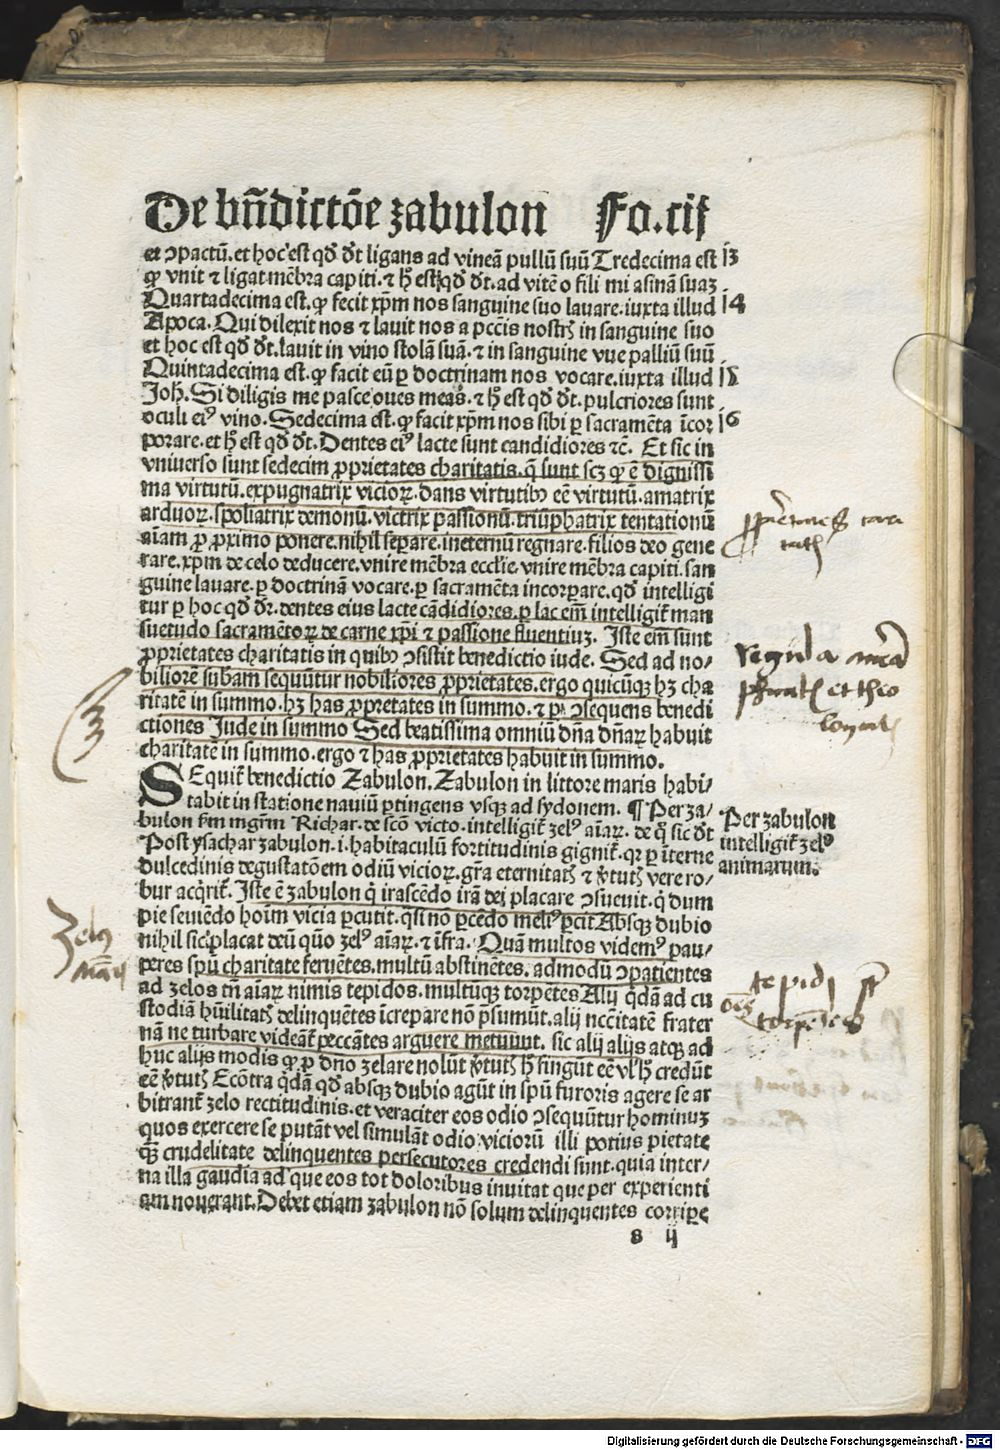 De bn̄dictōe zabulon Fo.cij
et ꝯpactū. et hoc est qd̄ dt̄ ligans ad vineā pullū suū Tredecima est 13
qꝫ vnit ⁊ ligat mēbra capiti. ⁊ h̄ est qd̄ dt̄. ad vitē o fili mi asinā suaꝫ
Quartadecima est. qꝫ fecit xp̄m nos sanguine suo lauare. iuxta illud 14
Apoca. Qui dilexit nos ⁊ lauit nos a pctīs nostrꝭ in sanguine suo
et hoc est qd̄ dt̄. lauit in vino stolā suā. ⁊ in sanguine vue palliū suū
Quintadecima est. qꝫ facit eū ꝑ doctrinam nos vocare. iuxta illud 15
Joh̄. Si diligis me pasce oues meas. ⁊ h̄ est qd̄ dt̄. pulcriores sunt
oculi eiꝰ vino. Sedecima est. qꝫ facit xp̄m nos sibi ꝑ sacramēta īcor 16
porare. et h̄ est qd̄ dt̄. Dentes eiꝰ lacte sunt candidiores ⁊c̄. Et sic in
vniuerso sunt sedecim ꝓprietates charitatis. q̄ sunt scꝫ qꝫ ē dignissi
ma virtutū. expugnatrix vicioꝝ. dans virtutibꝰ eē virtutū. amatrix
arduoꝝ. spoliatrix demonū. victrix passionū. triūphatrix tentationū
aīam ꝓ ꝓximo ponere. nihil seꝑare. in eternū regnare. filios deo gene
rare. xp̄m de celo deducere. vnire mēbra eccl̄ie. vnire mēbra capiti. san
guine lauare. ꝑ doctrinā vocare. ꝑ sacramēta incorꝑare. qd̄ intelligi
tur ꝑ hoc qd̄ dr̄. dentes eius lacte cādidiores. ꝑ lac em̄ intelligit̄ man
suetudo sacramētoꝝ de carne xp̄i ⁊ passione fluentiuꝫ. Iste em̄ sunt
ꝓprietates charitatis in quibꝰ ꝯsistit benedictio iude. Sed ad no⸗
biliorē sub̄am sequūtur nobiliores ꝓprietates. ergo quicūqꝫ hꝫ cha
ritatē in summo. hꝫ has ꝓprietates in summo. ⁊ ꝑ ꝯsequens benedi
ctiones Jude in summo Sed beatissima omniū dn̄a dn̄aꝝ habuit
charitatē in summo. ergo ⁊ has ꝓprietates habuit in summo.
SEquit̄ benedictio Zabulon. Zabulon in littore maris habi⸗
tabit in statione nauiū ꝑtingens vsqꝫ ad sydonem. ¶ Per za⸗
bulon fm̄ mgr̄m Richar. de scō victo. intelligit̄ zelꝰ aīaꝝ. de q̄ sic dt̄
Post ysachar zabulon. i. habitaculū fortitudinis gignit̄. qꝛ ꝑ īterne
dulcedinis degustatōem odiū vicioꝝ. gr̄a eternitatꝭ ⁊ v̄tutꝭ vere ro⸗
bur acq̄rit̄. Iste ē zabulon q̄ irascēdo irā dei placare ꝯsueuit. q̄ dum
pie seuiēdo hoīm vicia ꝑcutit. q̄si nō ꝑcēdo meliꝰ ꝑcit Absqꝫ dubio
nihil sic placat deū quō zelꝰ aīaꝝ. ⁊ īfra. Quā multos videmꝰ pau⸗
peres spū charitate feruētes. multū abstinētes. admodū ꝯpatientes
ad zelos tn̄ aīaꝝ nimis tepidos. multūqꝫ torpētes Alij q̄dā ad cu
stodiā hūilitatꝭ delinquētes īcrepare nō p̄sumūt. alij nc̄citatē frater
nā ne turbare videāt̄ peccātes arguere metuūt. sic alij alijs atqꝫ ad
huc alijs modis qꝫ ꝓ dn̄o zelare nolūt v̄tutꝭ h̄ fingūt eē vl̓ h̄ credūt
eē v̄tutꝭ Ecōtra q̄dā qd̄ absqꝫ dubio agūt in spū furoris agere se ar
bitrant̄ zelo rectitudinis. et veraciter eos odio ꝯsequūtur hominuꝫ
quos exercere se putāt vel simulāt odio viciorū illi potius pietate
qꝫ̄ crudelitate delinquentes persecutores credendi sunt. quia inter⸗
na illa gaudia ad que eos tot doloribus inuitat que per experienti
am nouerant. Debet etiam zabulon nō solum delinquentes corripe
s ij
Per zabulon
intelligit̄ zelꝰ
animarum.
regula
et theo
Zelꝰ
tepidi